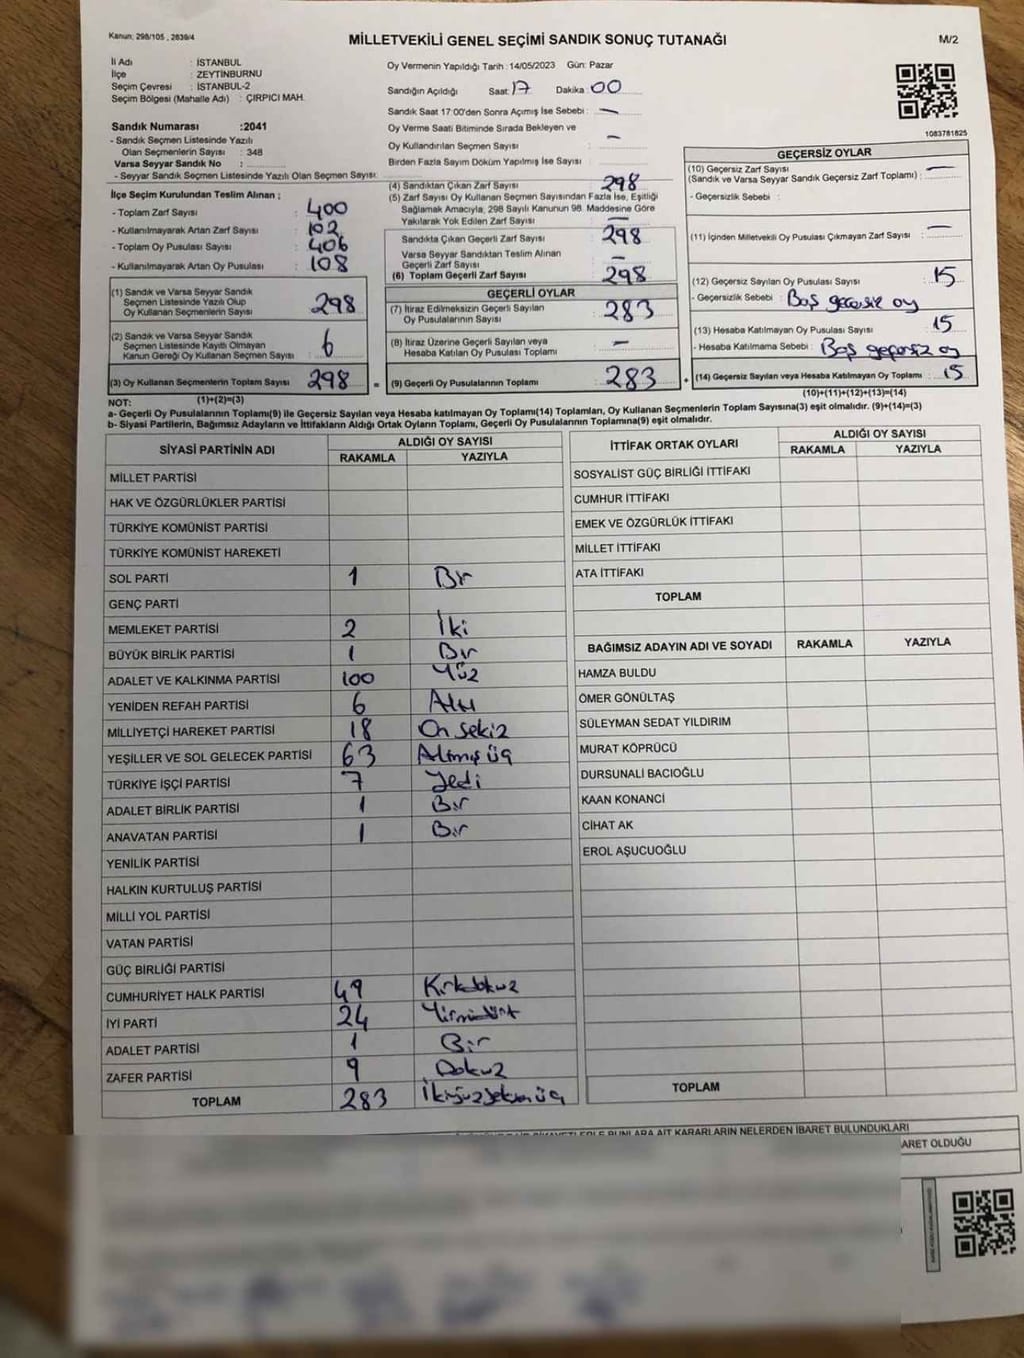 Kanun: 298/105 , 2839/4
MİLLETVEKİLİ GENEL SEÇİMİ SANDIK SONUÇ TUTANAĞI
M/2
İl Adı : İSTANBUL
İlçe : ZEYTİNBURNU
Seçim Çevresi : İSTANBUL-2
Seçim Bölgesi (Mahalle Adı) : ÇIRPICI MAH.
Sandık Numarası :2041
- Sandık Seçmen Listesinde Yazılı
Olan Seçmenlerin Sayısı : 348
Varsa Seyyar Sandık No :
- Seyyar Sandık Seçmen Listesinde Yazılı Olan Seçmen Sayısı:
Oy Vermenin Yapıldığı Tarih : 14/05/2023 Gün: Pazar
Sandığın Açıldığı Saat: 17 Dakika: 00
Sandık Saat 17:00'den Sonra Açılmış İse Sebebi : —
Oy Verme Saati Bitiminde Sırada Bekleyen ve
Oy Kullandırılan Seçmen Sayısı : —
Birden Fazla Sayım Döküm Yapılmış İse Sayısı :
1083781825
İlçe Seçim Kurulundan Teslim Alınan ;
- Toplam Zarf Sayısı : 400
- Kullanılmayarak Artan Zarf Sayısı : 102
- Toplam Oy Pusulası Sayısı : 406
- Kullanılmayarak Artan Oy Pusulası : 108
(1) Sandık ve Varsa Seyyar Sandık
Seçmen Listesinde Yazılı Olup
Oy Kullanan Seçmenlerin Sayısı : 298
(2) Sandık ve Varsa Seyyar Sandık
Seçmen Listesinde Kayıtlı Olmayan
Kanun Gereği Oy Kullanan Seçmen Sayısı : 6
(3) Oy Kullanan Seçmenlerin Toplam Sayısı : 298
(1)+(2)=(3)
(4) Sandıktan Çıkan Zarf Sayısı : 298
(5) Zarf Sayısı Oy Kullanan Seçmen Sayısından Fazla İse, Eşitliği
Sağlamak Amacıyla, 298 Sayılı Kanunun 98. Maddesine Göre
Yakılarak Yok Edilen Zarf Sayısı : —
Sandıkta Çıkan Geçerli Zarf Sayısı : 298
Varsa Seyyar Sandıktan Teslim Alınan
Geçerli Zarf Sayısı : —
(6) Toplam Geçerli Zarf Sayısı : 298
GEÇERLİ OYLAR
(7) İtiraz Edilmeksizin Geçerli Sayılan
Oy Pusulalarının Sayısı : 283
(8) İtiraz Üzerine Geçerli Sayılan veya
Hesaba Katılan Oy Pusulası Toplamı : —
= (9) Geçerli Oy Pusulalarının Toplamı : 283
GEÇERSİZ OYLAR
(10) Geçersiz Zarf Sayısı
(Sandık ve Varsa Seyyar Sandık Geçersiz Zarf Toplamı) : —
- Geçersizlik Sebebi :
(11) İçinden Milletvekili Oy Pusulası Çıkmayan Zarf Sayısı : —
(12) Geçersiz Sayılan Oy Pusulası Sayısı : 15
- Geçersizlik Sebebi : Boş geçersiz oy
(13) Hesaba Katılmayan Oy Pusulası Sayısı : 15
- Hesaba Katılmama Sebebi : Boş geçersiz oy
+ (14) Geçersiz Sayılan veya Hesaba Katılmayan Oy Toplamı : 15
(10)+(11)+(12)+(13)=(14)
NOT:
a- Geçerli Oy Pusulalarının Toplamı(9) ile Geçersiz Sayılan veya Hesaba katılmayan Oy Toplamı(14) Toplamları, Oy Kullanan Seçmenlerin Toplam Sayısına(3) eşit olmalıdır. (9)+(14)=(3)
b- Siyasi Partilerin, Bağımsız Adayların ve İttifakların Aldığı Ortak Oyların Toplamı, Geçerli Oy Pusulalarının Toplamına(9) eşit olmalıdır.
SİYASİ PARTİNİN ADI ALDIĞI OY SAYISI
RAKAMLA YAZIYLA
MİLLET PARTİSİ
HAK VE ÖZGÜRLÜKLER PARTİSİ
TÜRKİYE KOMÜNİST PARTİSİ
TÜRKİYE KOMÜNİST HAREKETİ
SOL PARTİ 1 Bir
GENÇ PARTİ
MEMLEKET PARTİSİ 2 İki
BÜYÜK BİRLİK PARTİSİ 1 Bir
ADALET VE KALKINMA PARTİSİ 100 Yüz
YENİDEN REFAH PARTİSİ 6 Altı
MİLLİYETÇİ HAREKET PARTİSİ 18 On sekiz
YEŞİLLER VE SOL GELECEK PARTİSİ 63 Altmış üç
TÜRKİYE İŞÇİ PARTİSİ 7 Yedi
ADALET BİRLİK PARTİSİ 1 Bir
ANAVATAN PARTİSİ 1 Bir
YENİLİK PARTİSİ
HALKIN KURTULUŞ PARTİSİ
MİLLİ YOL PARTİSİ
VATAN PARTİSİ
GÜÇ BİRLİĞİ PARTİSİ
CUMHURİYET HALK PARTİSİ 49 Kırkdokuz
İYİ PARTİ 24 Yirmidört
ADALET PARTİSİ 1 Bir
ZAFER PARTİSİ 9 Dokuz
TOPLAM 283 İkiyüzseksenüç
İTTİFAK ORTAK OYLARI ALDIĞI OY SAYISI
RAKAMLA YAZIYLA
SOSYALİST GÜÇ BİRLİĞİ İTTİFAKI
CUMHUR İTTİFAKI
EMEK VE ÖZGÜRLÜK İTTİFAKI
MİLLET İTTİFAKI
ATA İTTİFAKI
TOPLAM
BAĞIMSIZ ADAYIN ADI VE SOYADI RAKAMLA YAZIYLA
HAMZA BULDU
ÖMER GÖNÜLTAŞ
SÜLEYMAN SEDAT YILDIRIM
MURAT KÖPRÜCÜ
DURSUNALİ BACIOĞLU
KAAN KONANCİ
CİHAT AK
EROL AŞUCUOĞLU
TOPLAM
BUNLARA AİT KARARLARIN NELERDEN İBARET BULUNDUKLARI
ARET OLDUĞU